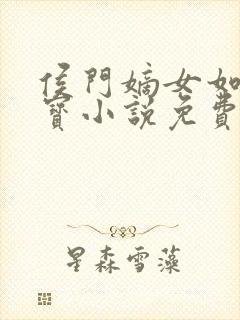 侯門嫡女如
寶小說免費
星森雪藻